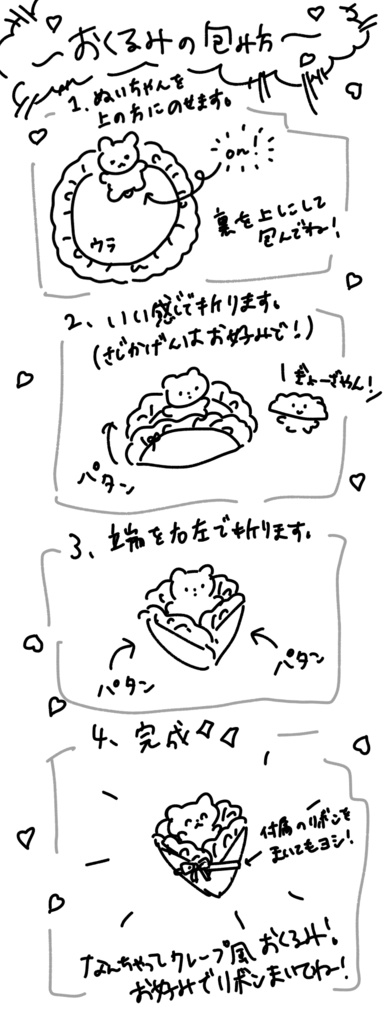 〜おくるみの包み方〜
1、ぬいちゃんを
上の方にのせます。
on!
ウラ
裏を上にして
包んでね!
2、いい感じで折ります。
(さじかげんはお好みで!)
ぎょーざやん!
パタン
3、端を右左で折ります。
パタン
パタン
4、完成
付属のリボンを
まいてもヨシ!
なんちゃってクレープ風おくるみ!
お好みでリボンまいてねー!